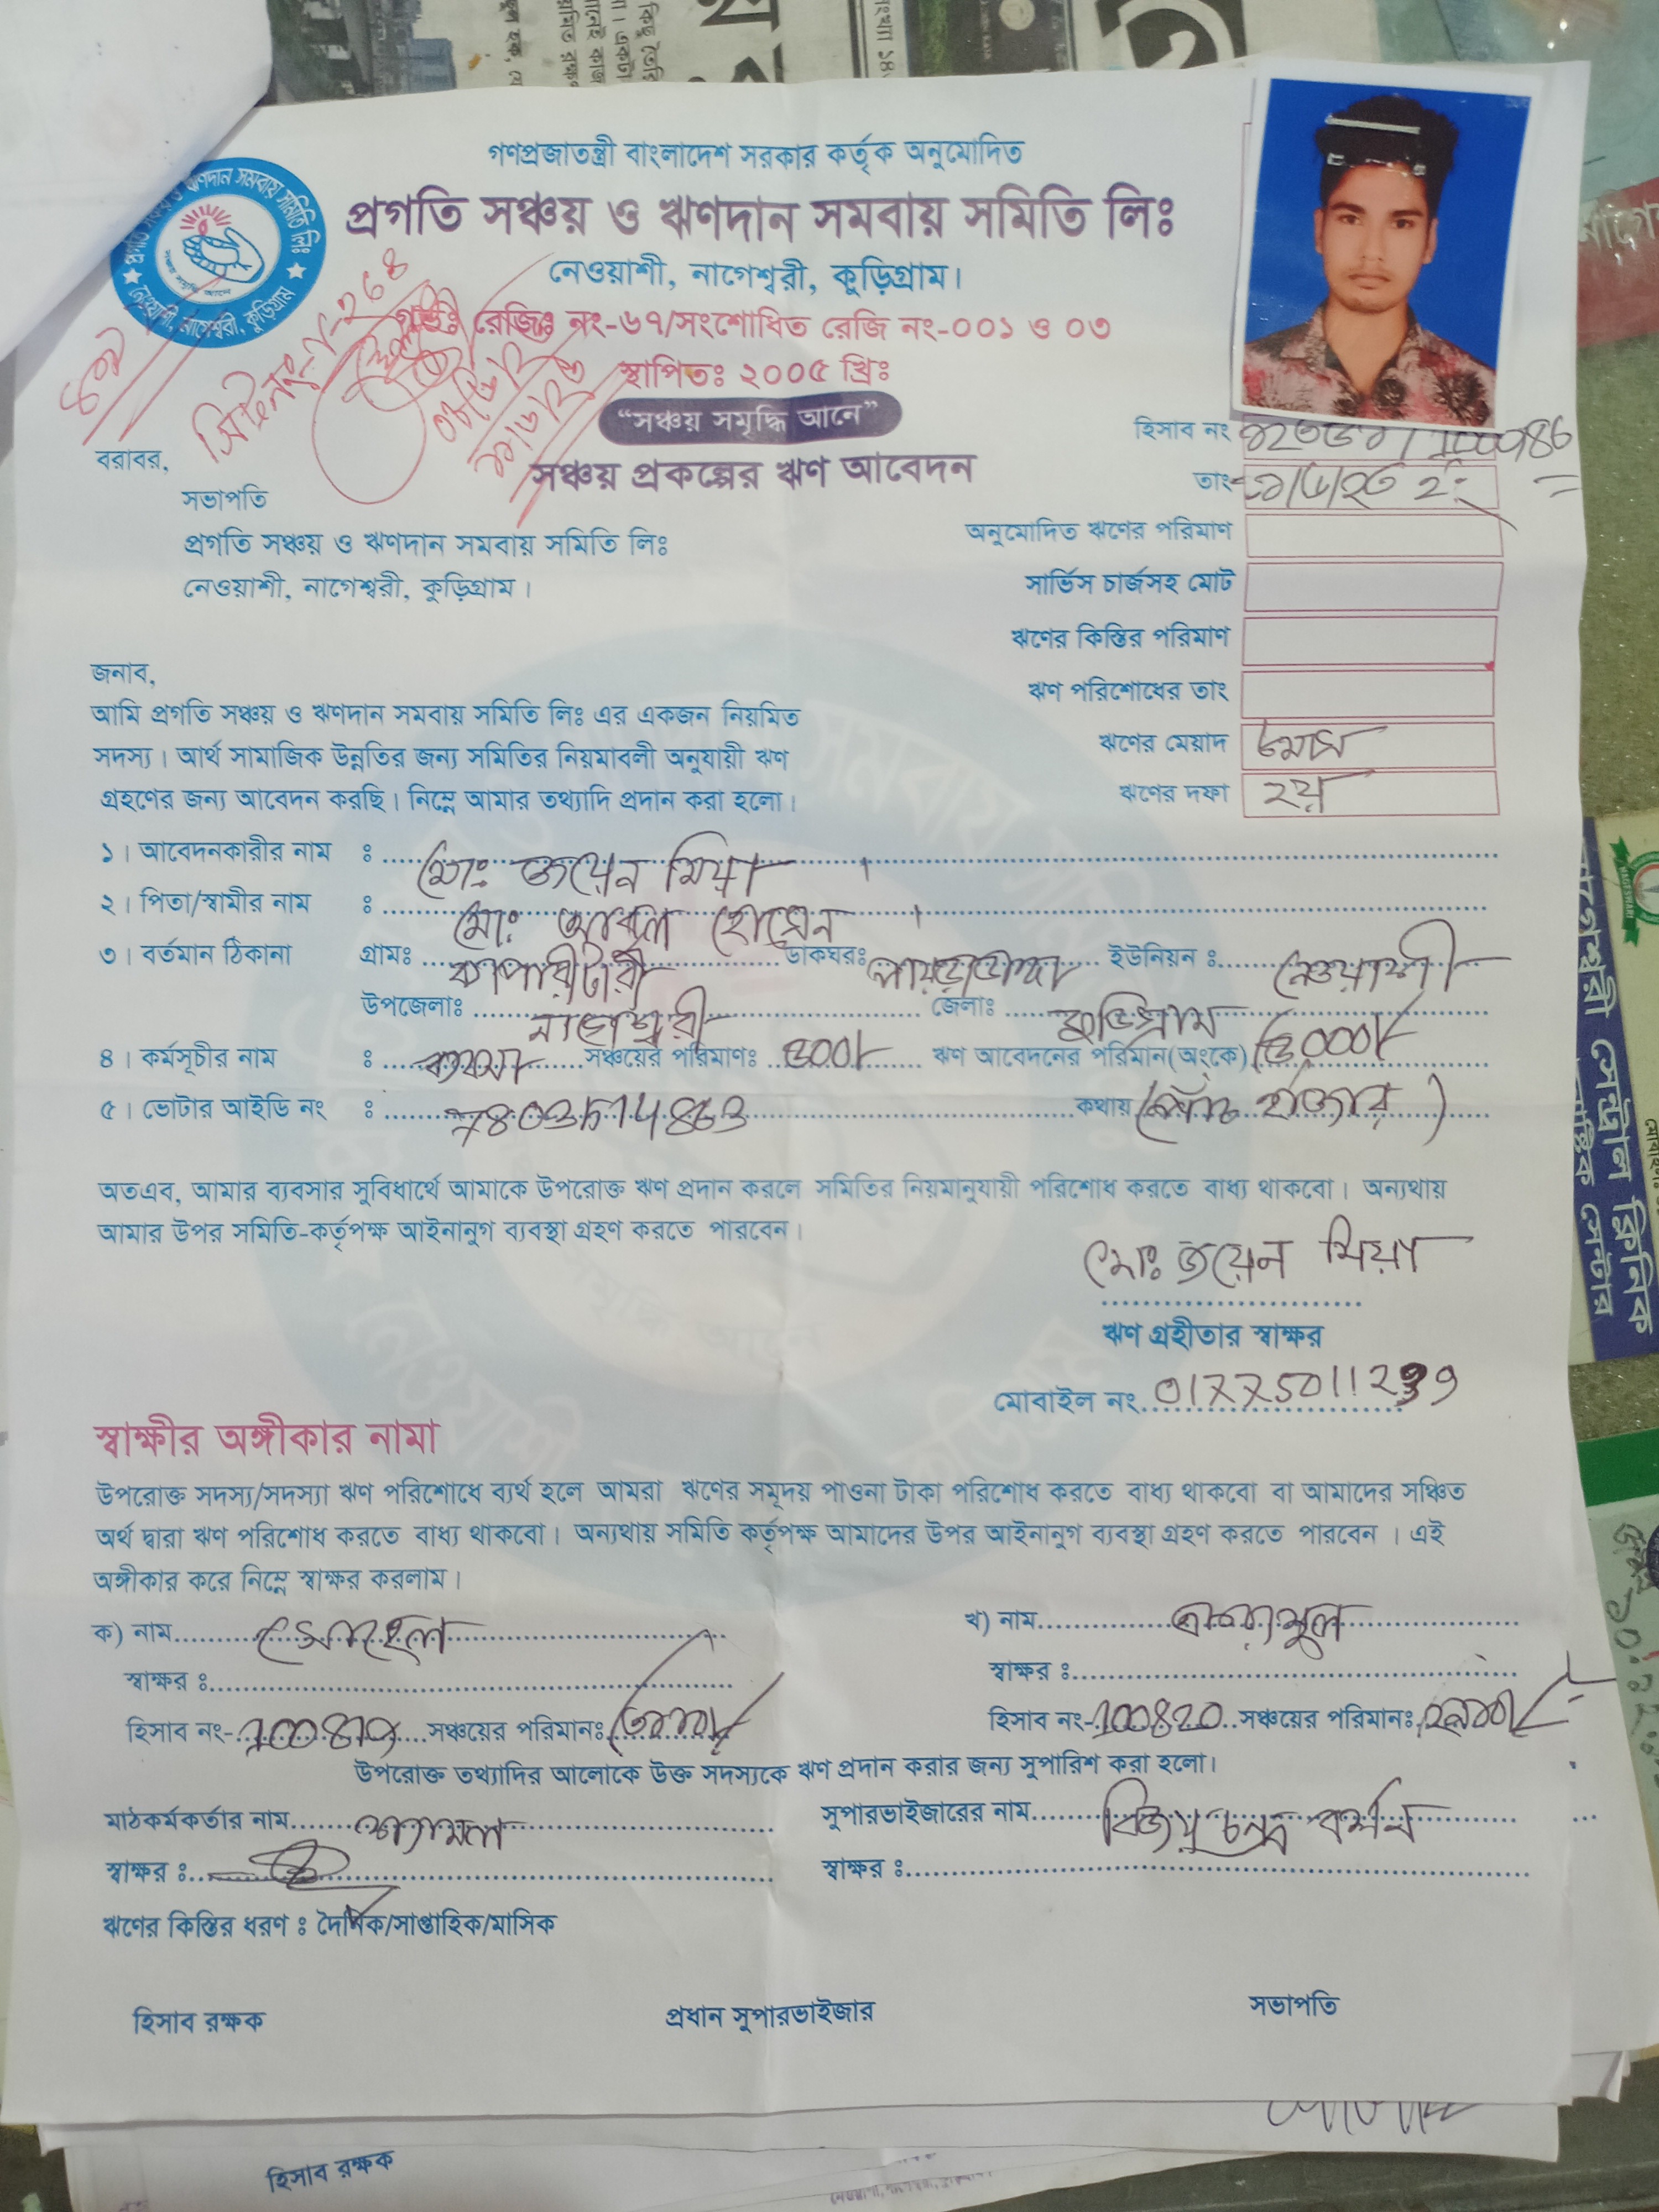 গণপ্রজাতন্ত্রী বাংলাদেশ সরকার কর্তৃক অনুমোদিত
প্রগতি সঞ্চয় ও ঋণদান সমবায় সমিতি লিঃ
নেওয়াশী, নাগেশ্বরী, কুড়িগ্রাম।
রেজিঃ নং-৬৭/সংশোধিত রেজি নং-০০১ ও ০৩
স্থাপিতঃ ২০০৫ খ্রিঃ
“সঞ্চয় সমৃদ্ধি আনে”
সঞ্চয় প্রকল্পের ঋণ আবেদন
হিসাব নং
তাং
অনুমোদিত ঋণের পরিমাণ
সার্ভিস চার্জসহ মোট
ঋণের কিস্তির পরিমাণ
ঋণ পরিশোধের তাং
ঋণের মেয়াদ
ঋণের দফা ২য়
বরাবর,
সভাপতি
প্রগতি সঞ্চয় ও ঋণদান সমবায় সমিতি লিঃ
নেওয়াশী, নাগেশ্বরী, কুড়িগ্রাম।
জনাব,
আমি প্রগতি সঞ্চয় ও ঋণদান সমবায় সমিতি লিঃ এর একজন নিয়মিত
সদস্য। আর্থ সামাজিক উন্নতির জন্য সমিতির নিয়মাবলী অনুযায়ী ঋণ
গ্রহণের জন্য আবেদন করছি। নিম্নে আমার তথ্যাদি প্রদান করা হলো।
১। আবেদনকারীর নাম ঃ মোঃ জয়েন মিয়া
২। পিতা/স্বামীর নাম ঃ মোঃ আবুল হোসেন
৩। বর্তমান ঠিকানা গ্রামঃ ব্যাপারীটারী ডাকঘরঃ পায়ড়াডাঙ্গা ইউনিয়ন ঃ নেওয়াশী
উপজেলাঃ নাগেশ্বরী জেলাঃ কুড়িগ্রাম
৪। কর্মসূচীর নাম ঃ ব্যবসা সঞ্চয়ের পরিমাণঃ ঋণ আবেদনের পরিমান(অংকে) ৫,০০০/-
৫। ভোটার আইডি নং ঃ কথায় (পাঁচ হাজার)
অতএব, আমার ব্যবসার সুবিধার্থে আমাকে উপরোক্ত ঋণ প্রদান করলে সমিতির নিয়মানুযায়ী পরিশোধ করতে বাধ্য থাকবো। অন্যথায়
আমার উপর সমিতি-কর্তৃপক্ষ আইনানুগ ব্যবস্থা গ্রহণ করতে পারবেন।
মোঃ জয়েন মিয়া
ঋণ গ্রহীতার স্বাক্ষর
মোবাইল নং
স্বাক্ষীর অঙ্গীকার নামা
উপরোক্ত সদস্য/সদস্যা ঋণ পরিশোধে ব্যর্থ হলে আমরা ঋণের সমূদয় পাওনা টাকা পরিশোধ করতে বাধ্য থাকবো বা আমাদের সঞ্চিত
অর্থ দ্বারা ঋণ পরিশোধ করতে বাধ্য থাকবো। অন্যথায় সমিতি কর্তৃপক্ষ আমাদের উপর আইনানুগ ব্যবস্থা গ্রহণ করতে পারবেন । এই
অঙ্গীকার করে নিম্নে স্বাক্ষর করলাম।
ক) নাম সোহেল খ) নাম
স্বাক্ষর ঃ স্বাক্ষর ঃ
হিসাব নং- সঞ্চয়ের পরিমানঃ হিসাব নং- 100820 সঞ্চয়ের পরিমানঃ
উপরোক্ত তথ্যাদির আলোকে উক্ত সদস্যকে ঋণ প্রদান করার জন্য সুপারিশ করা হলো।
মাঠকর্মকর্তার নাম শ্যামল সুপারভাইজারের নাম বিজয় চন্দ্র বর্মন
স্বাক্ষর ঃ স্বাক্ষর ঃ
ঋণের কিস্তির ধরণ ঃ দৈনিক/সাপ্তাহিক/মাসিক
হিসাব রক্ষক প্রধান সুপারভাইজার সভাপতি
হিসাব রক্ষক